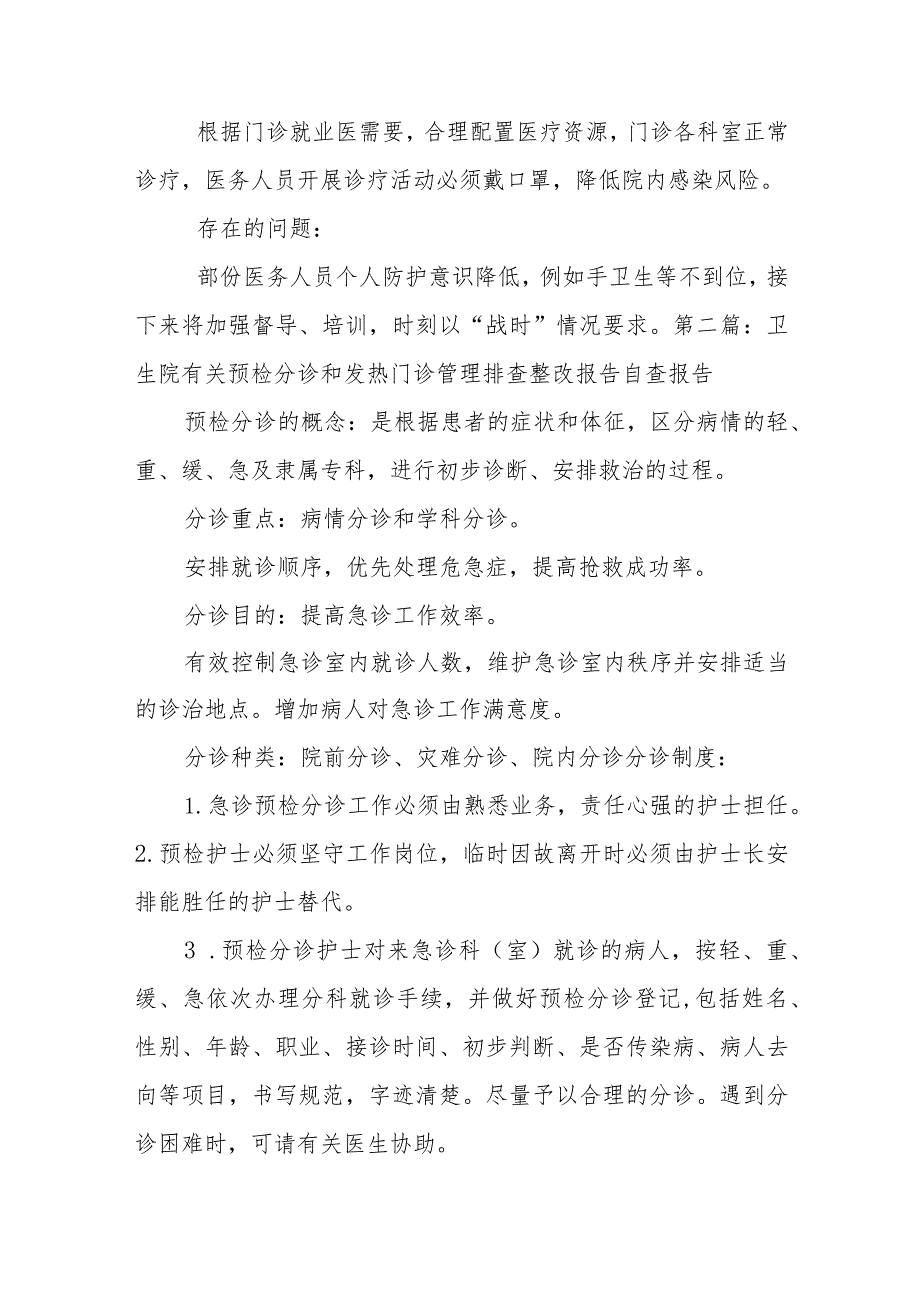 根据门诊就业医需要，合理配置医疗资源，门诊各科室正常
诊疗，医务人员开展诊疗活动必须戴口罩，降低院内感染风险。
存在的问题：
部份医务人员个人防护意识降低，例如手卫生等不到位，接
下来将加强督导、培训，时刻以“战时”情况要求。第二篇：卫
生院有关预检分诊和发热门诊管理排查整改报告自查报告
预检分诊的概念：是根据患者的症状和体征，区分病情的轻、
重、缓、急及隶属专科，进行初步诊断、安排救治的过程。
分诊重点：病情分诊和学科分诊。
安排就诊顺序，优先处理危急症，提高抢救成功率。
分诊目的：提高急诊工作效率。
有效控制急诊室内就诊人数，维护急诊室内秩序并安排适当
的诊治地点。增加病人对急诊工作满意度。
分诊种类：院前分诊、灾难分诊、院内分诊分诊制度：
1.急诊预检分诊工作必须由熟悉业务，责任心强的护士担任。
2.预检护士必须坚守工作岗位，临时因故离开时必须由护士长安
排能胜任的护士替代。
3 .预检分诊护士对来急诊科（室）就诊的病人，按轻、重、
缓、急依次办理分科就诊手续，并做好预检分诊登记,包括姓名、
性别、年龄、职业、接诊时间、初步判断、是否传染病、病人去
向等项目，书写规范，字迹清楚。尽量予以合理的分诊。遇到分
诊困难时，可请有关医生协助。